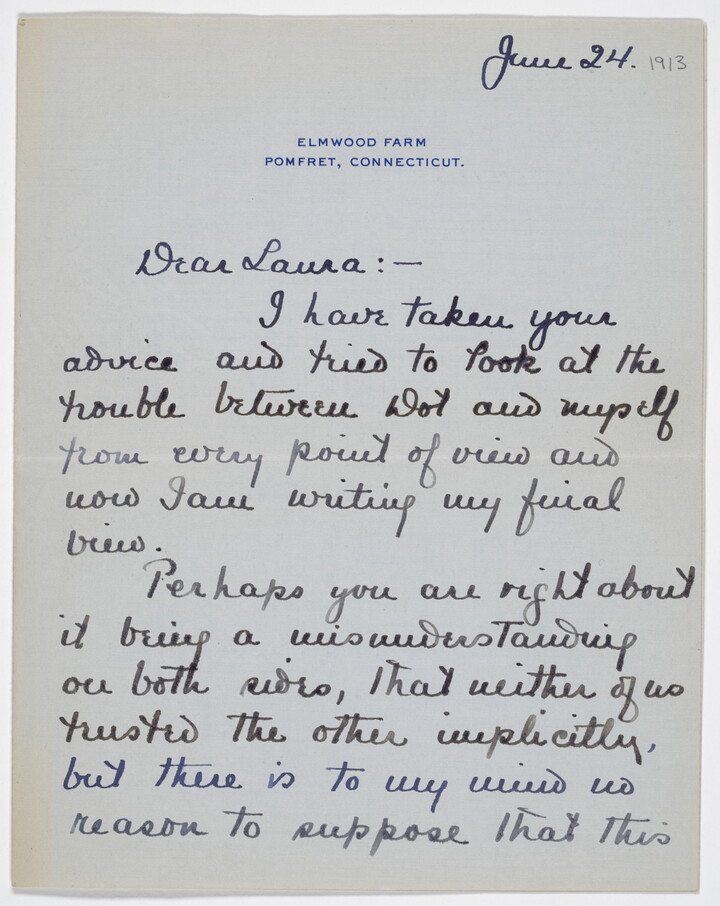 June 24. 1913
ELMWOOD FARM
POMFRET, CONNECTICUT.
Dear Laura:—
I have taken your
advice and tried to look at the
trouble between Dot and myself
from every point of view and
now I am writing my final
view.
Perhaps you are right about
it being a misunderstanding
on both sides, that neither of us
trusted the other implicitly,
but there is to my mind no
reason to suppose that this